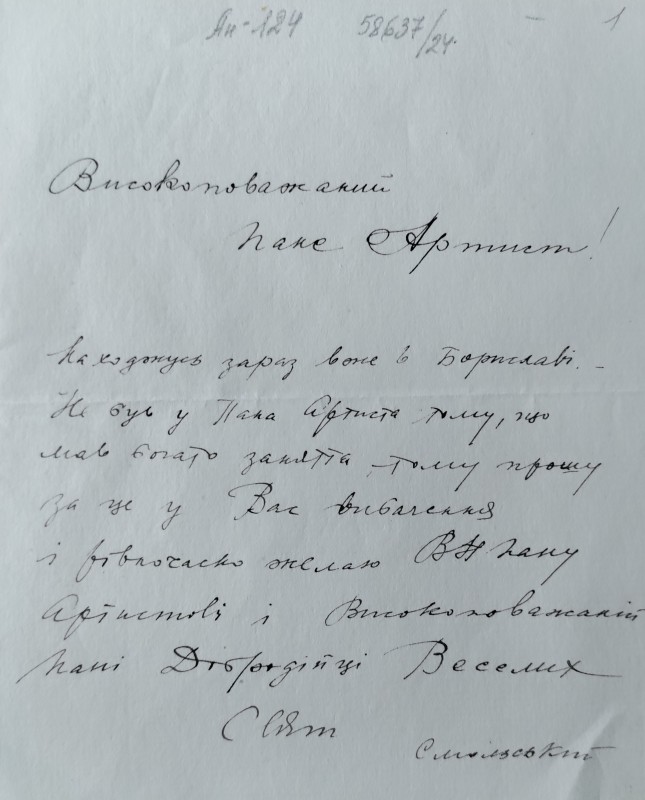 Ан-124 58637/24 - 1
Високоповажаний
Пане Артист!
Находжусь зараз вже в Бориславі. –
Не був у Пана Артиста тому, що
мав богато заняття, тому прошу
за це у Вас вибачення
і рівночасно желаю ВП Пану
Артистові і Високоповажаній
Пані Добродійці Веселих
Свят
Смольський